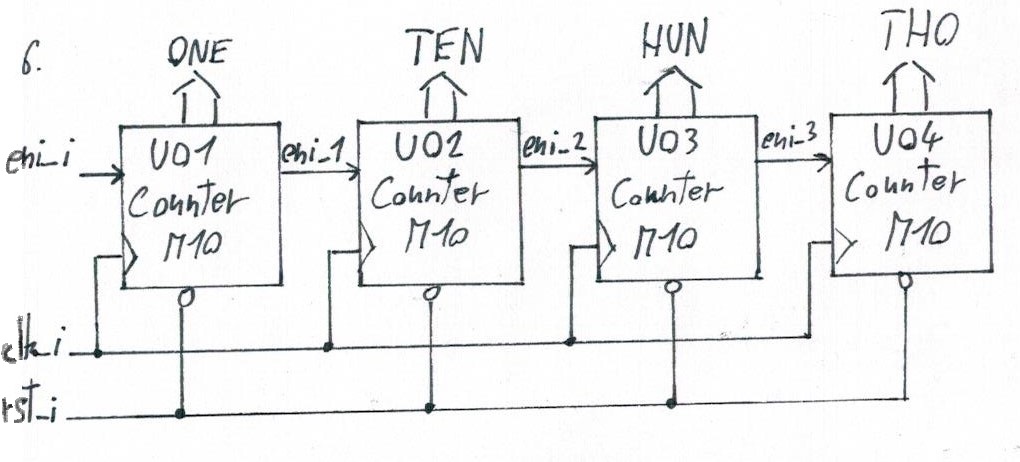 6.
ONE
TEN
HUN
THO
eni_i
U01
Counter
M10
eni_1
U02
Counter
M10
eni_2
U03
Counter
M10
eni_3
U04
Counter
M10
clk_i
rst_i